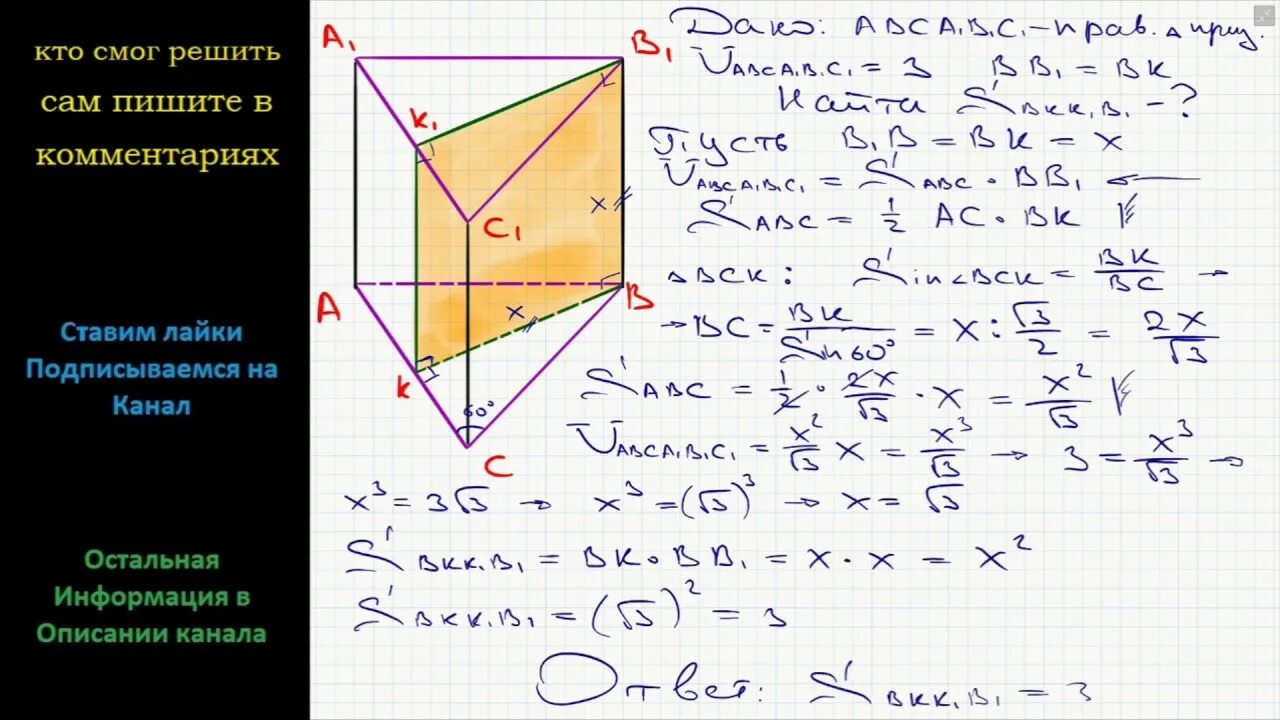 кто смог решить
сам пишите в
комментариях
Ставим лайки
Подписываемся на
Канал
Остальная
Информация в
Описании канала
A₁
B₁
K₁
C₁
x
A
B
x
K
60°
C
Дано: ABCA₁B₁C₁ – прав. △ приз.
V_ABCA₁B₁C₁ = 3 BB₁ = BK
Найти S_BKK₁B₁ - ?
Пусть B₁B = BK = x
V_ABCA₁B₁C₁ = S_ABC · BB₁ ←
S_ABC = 1/2 AC · BK
△BCK: Sin∠BCK = BK/BC →
→ BC = BK/Sin60° = x : √3/2 = 2x/√3
S_ABC = 1/2 · 2x/√3 · x = x²/√3
V_ABCA₁B₁C₁ = x²/√3 x = x³/√3 → 3 = x³/√3 →
x³ = 3√3 → x³ = (√3)³ → x = √3
S_BKK₁B₁ = BK · BB₁ = x · x = x²
S_BKK₁B₁ = (√3)² = 3
Ответ: S_BKK₁B₁ = 3